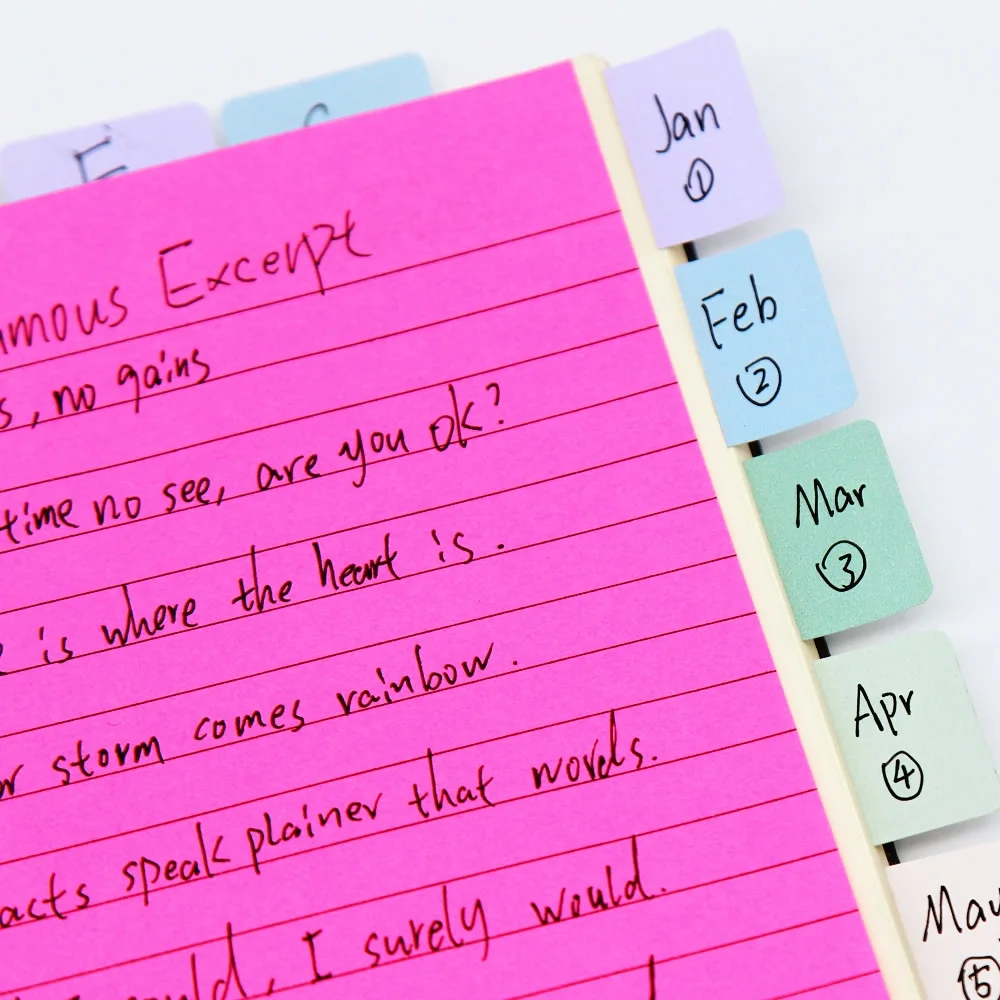 E
Famous Excerpt
s, no gains
time no see, are you ok?
e is where the heart is.
r storm comes rainbow.
acts speak plainer that words.
I could, I surely would.
Jan
①
Feb
②
Mar
③
Apr
④
May
⑤